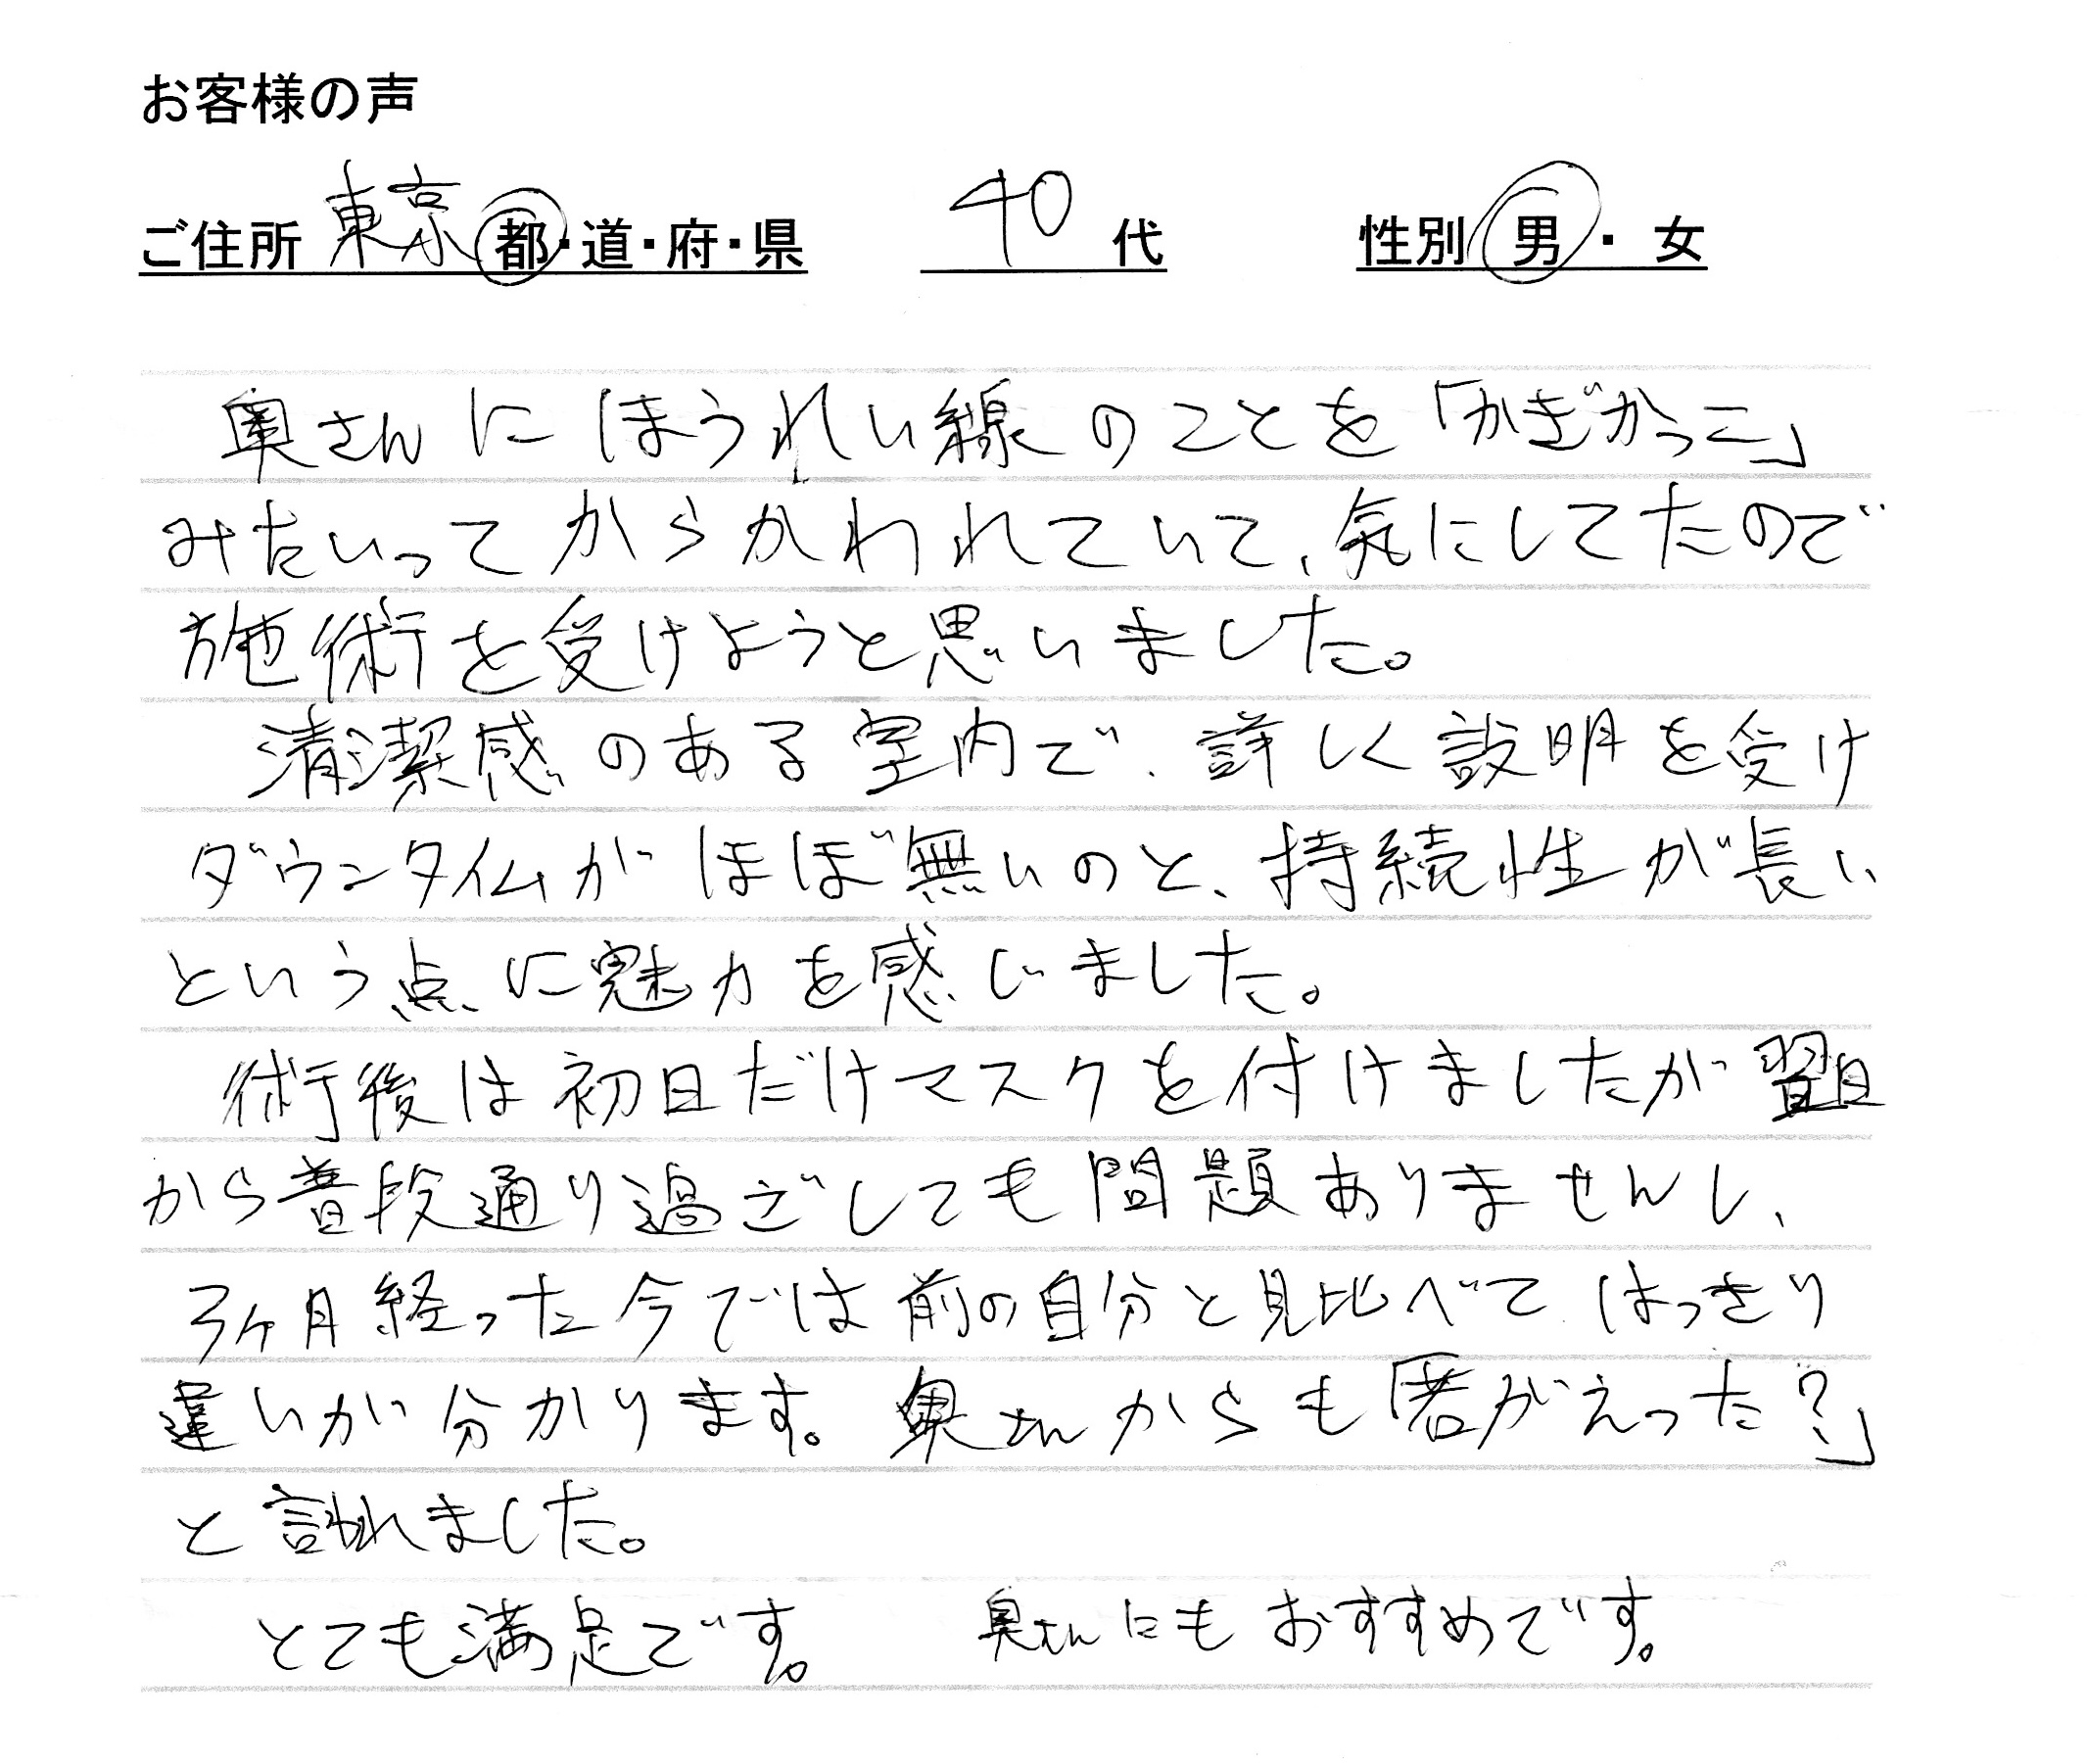 お客様の声
ご住所 東京 都・道・府・県 40 代 性別 男・女
奥さんにほうれい線のことを「かぎかっこ」
みたいってからかわれていて、気にしてたので
施術を受けようと思いました。
清潔感のある室内で、詳しく説明を受け
ダウンタイムがほぼ無いのと、持続性が長い
という点に魅力を感じました。
術後は初日だけマスクを付けましたが翌日
から普段通り過ごしても問題ありませんし、
3ヶ月経った今では前の自分と見比べてはっきり
違いが分かります。奥さんからも「若がえった?」
と言われました。
とても満足です。 奥さんにもおすすめです。